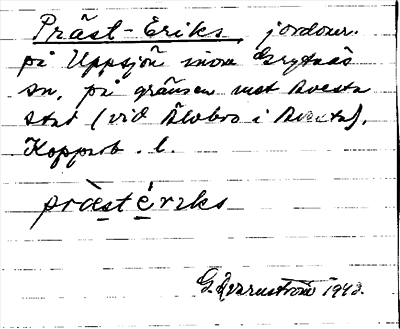 Präst-Eriks, jordområ.
på Uppsjön inom Grytnäs
sn, på gränsen mot Avesta
stad (vid Älvbro i Avesta),
Kopparb. l.
präst ériks
G. Qvarnström 1948.